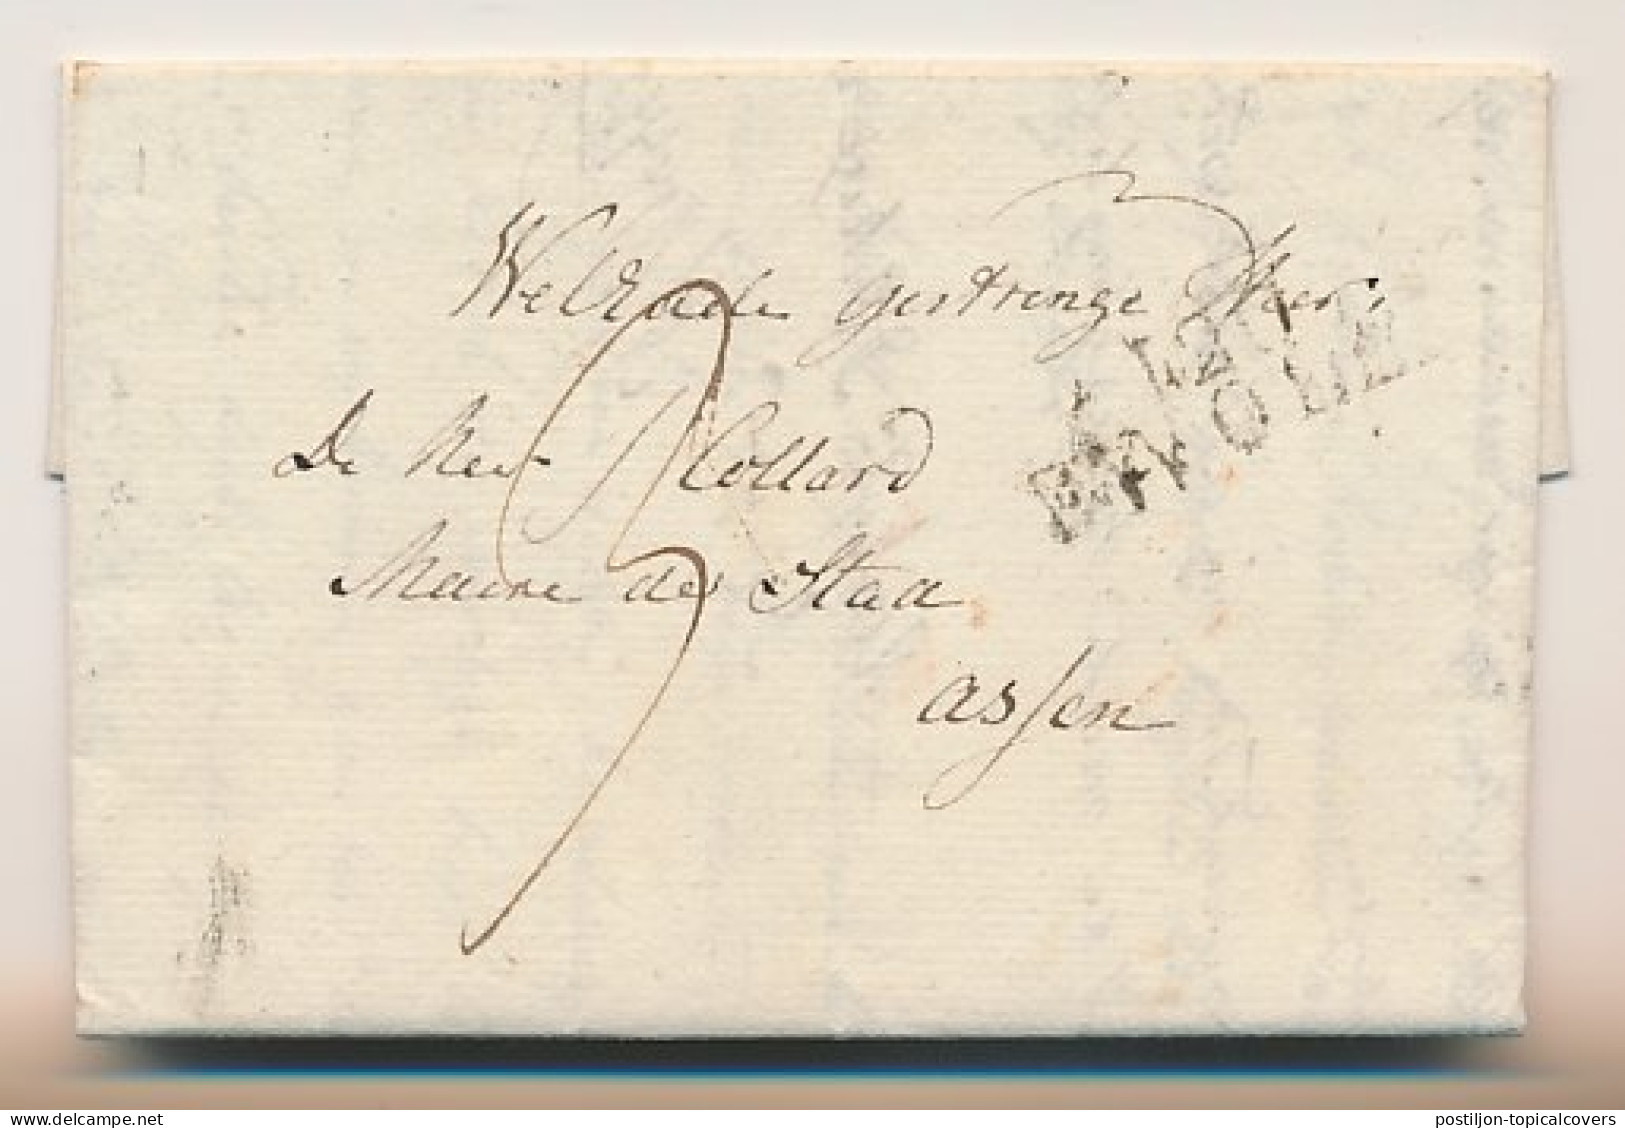 WelEdele gestrenge Heer,
De Heer Collard
Maire der Stad
assen
www.delcampe.net
postiljon-topicalcovers